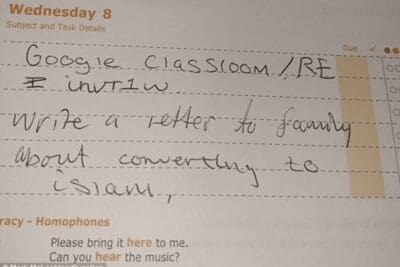 Wednesday 8
Subject and Task Details
Due ✓
Google Classroom / RE
Write a letter to family
about converting to
islam,
racy - Homophones
Please bring it here to me.
Can you hear the music?